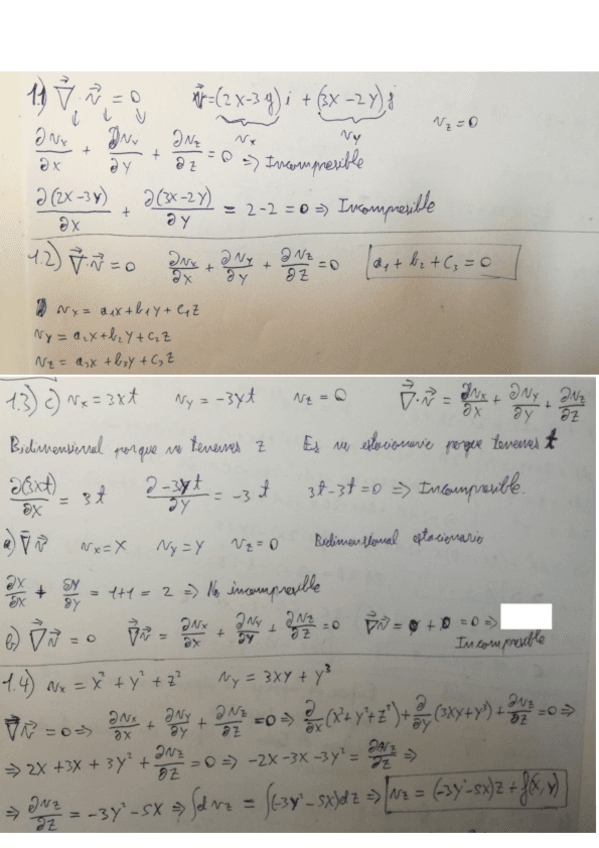 1.1) ∇⃗ · v⃗ = 0 v⃗ = (2x-3y) i + (3x-2y) j
v_x v_y v_z = 0
∂v_x/∂x + ∂v_y/∂y + ∂v_z/∂z = 0 ⇒ Incompresible
∂(2x-3y)/∂x + ∂(3x-2y)/∂y = 2-2 = 0 ⇒ Incompresible
1.2) ∇⃗ · v⃗ = 0 ∂v_x/∂x + ∂v_y/∂y + ∂v_z/∂z = 0 a₁ + b₂ + c₃ = 0
v_x = a₁x + b₁y + c₁z
v_y = a₂x + b₂y + c₂z
v_z = a₃x + b₃y + c₃z
1.3) c) v_x = 3xt v_y = -3yt v_z = 0 ∇⃗ · v⃗ = ∂v_x/∂x + ∂v_y/∂y + ∂v_z/∂z
Bidimensional porque no tenemos z Es no estacionario porque tenemos t
∂(3xt)/∂x = 3t ∂-3yt/∂y = -3t 3t-3t = 0 ⇒ Incompresible.
a) ∇⃗ v⃗ v_x = x v_y = y v_z = 0 Bidimensional estacionario
∂x/∂x + ∂y/∂y = 1+1 = 2 ⇒ No incompresible
b) ∇⃗ v⃗ = 0 ∇⃗ v⃗ = ∂v_x/∂x + ∂v_y/∂y + ∂v_z/∂z = 0 ∇⃗ v⃗ = 0 + 0 = 0 ⇒
Incompresible
1.4) v_x = x² + y² + z² v_y = 3xy + y³
∇⃗ v⃗ = 0 ⇒ ∂v_x/∂x + ∂v_y/∂y + ∂v_z/∂z = 0 ⇒ ∂/∂x (x²+y²+z²) + ∂/∂y (3xy+y³) + ∂v_z/∂z = 0 ⇒
⇒ 2x + 3x + 3y² + ∂v_z/∂z = 0 ⇒ -2x - 3x - 3y² = ∂v_z/∂z ⇒
⇒ ∂v_z/∂z = -3y² - 5x ⇒ ∫dv_z = ∫(-3y² - 5x)dz ⇒ v_z = (-3y² - 5x)z + f(x,y)